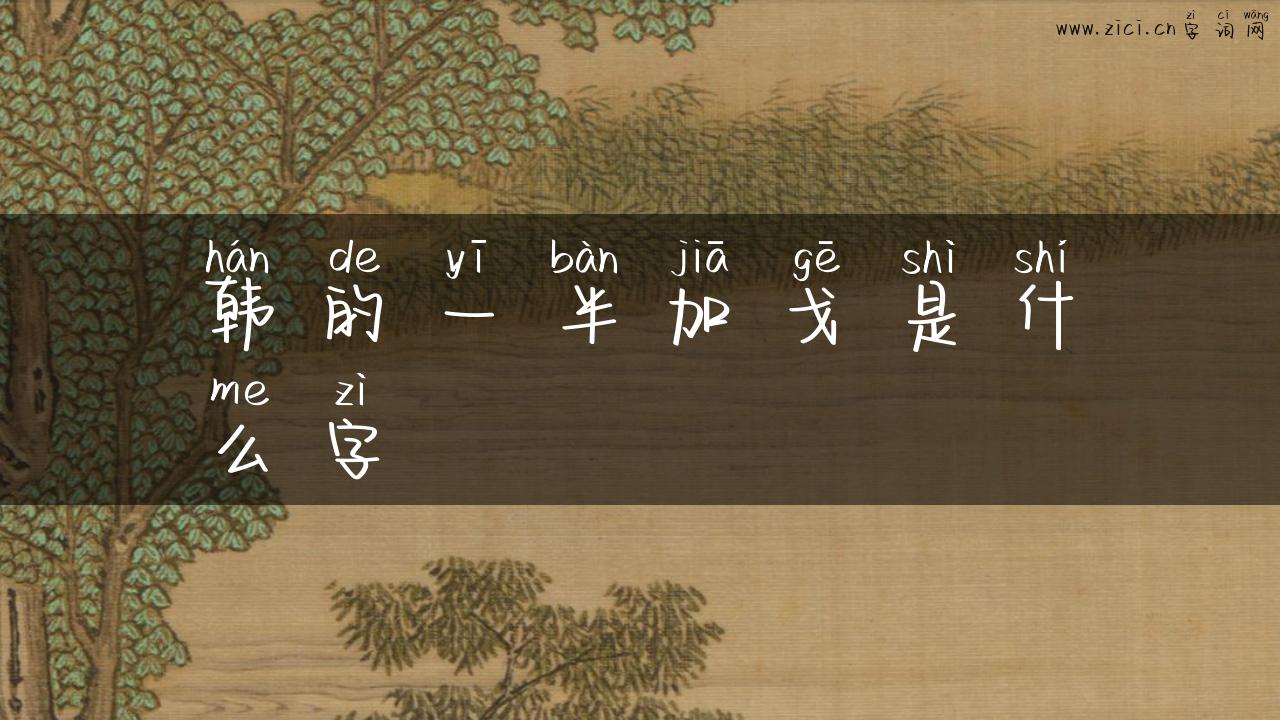 zì cí wǎng
www.zici.cn 字词网
hán de yī bàn jiā gē shì shí
韩的一半加戈是什
me zì
么字